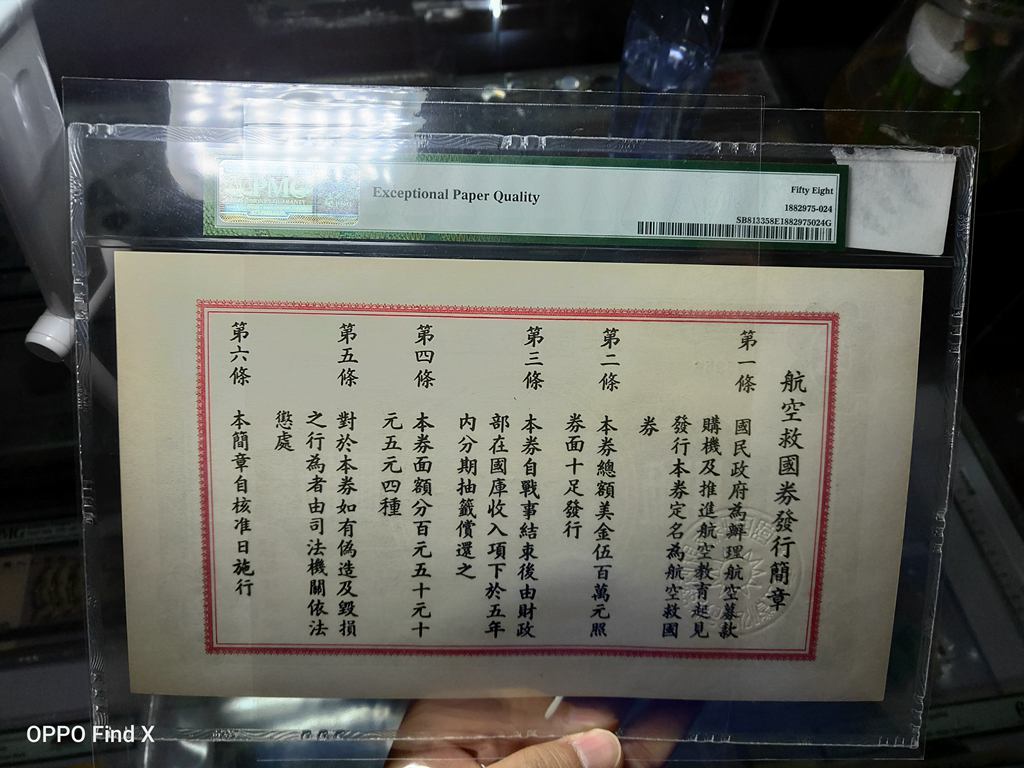 PMG
Exceptional Paper Quality
Fifty Eight
1882975-024
SB813358E1882975024G
航空救國券發行簡章
第一條 國民政府為辦理航空募款
購機及推進航空教育起見
發行本券定名為航空救國
券
第二條 本券總額美金伍百萬元照
券面十足發行
第三條 本券自戰事結束後由財政
部在國庫收入項下於五年
內分期抽籤償還之
第四條 本券面額分百元五十元十
元五元四種
第五條 對於本券如有偽造及毀損
之行為者由司法機關依法
懲處
第六條 本簡章自核准日施行
OPPO Find X